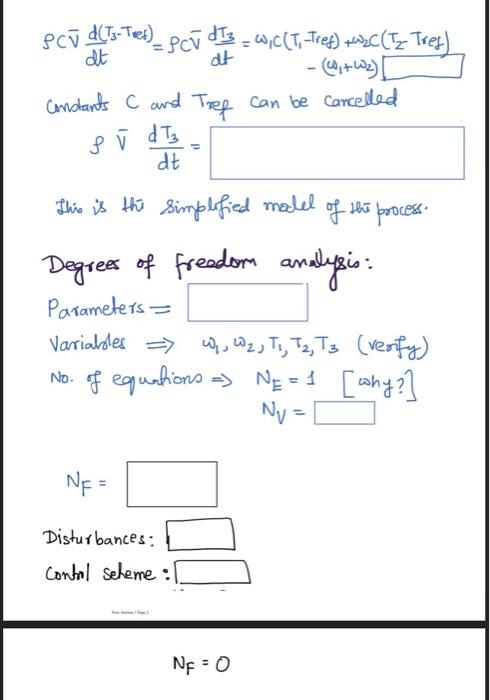 ρCV̄ d(T₃-Tref)/dt = ρCV̄ dT₃/dt = ω₁C(T₁-Tref) + ω₂C(T₂-Tref)
- (ω₁+ω₂)
Constants C and Tref can be cancelled
ρ V̄ dT₃/dt =
This is the simplified model of the process.
Degrees of freedom analysis:
Parameters =
Variables ⇒ ω₁, ω₂, T₁, T₂, T₃ (verify)
No. of equations ⇒ NE = 1 [why?]
NV =
NF =
Disturbances:
Control scheme:
NF = 0